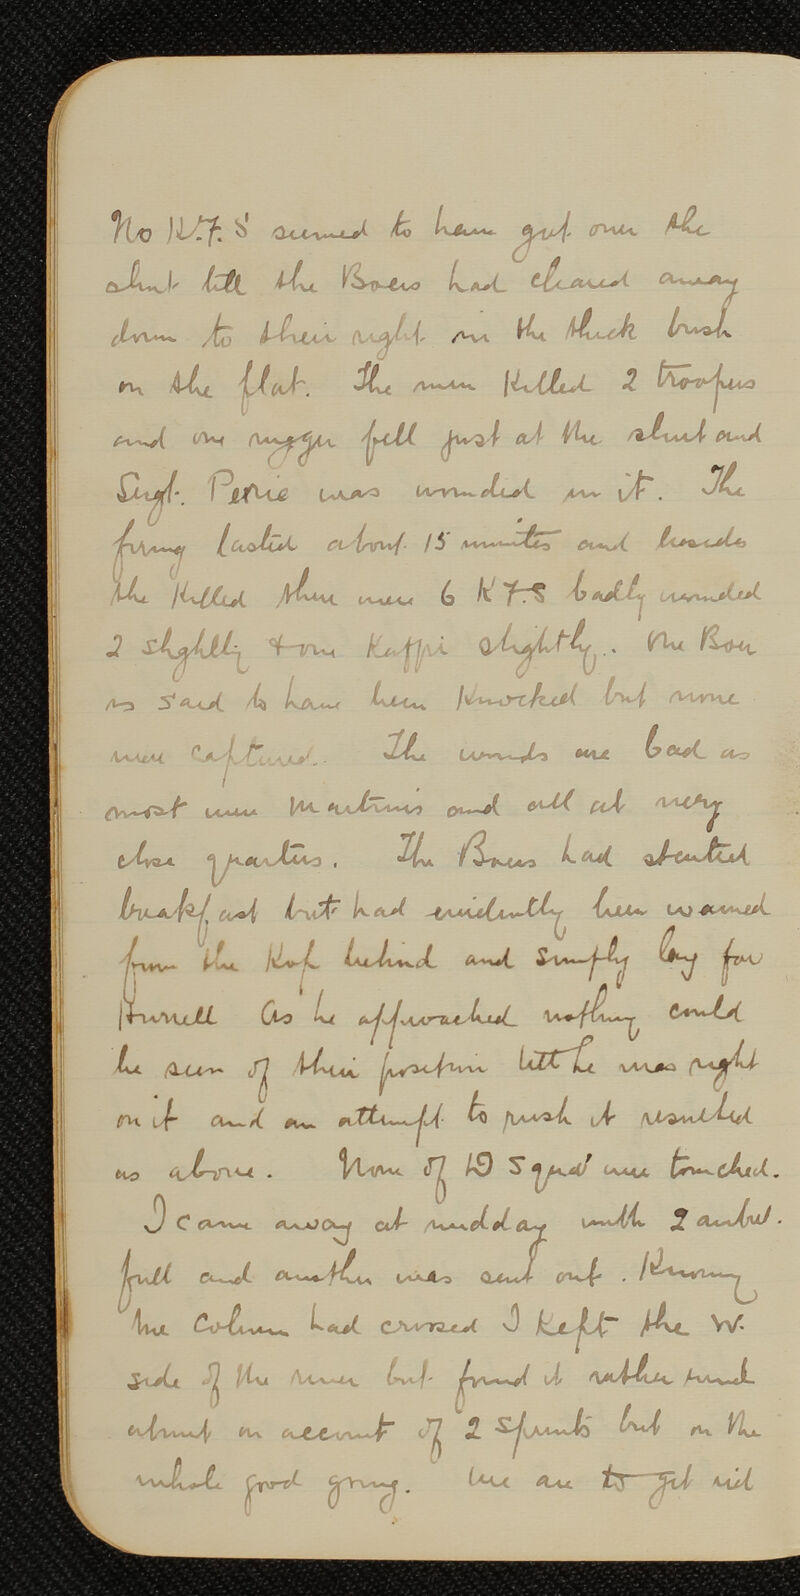 No K.F.S seemed to have got over the
sluit till the Boers had cleared away
down to their right in the thick bush
on the flat. The men killed 2 troopers
and one nigger fell just at the sluit and
Sergt. Perrie was wounded in it. The
firing lasted about 15 minutes and besides
the killed there were 6 K.F.S badly wounded
2 slightly & one Kaffir slightly. One Boer
is said to have been knocked but none
were captured. The wounds are bad as
most were Martinis and all at very
close quarters. The Boers had started
breakfast but had evidently been warned
from the Kop behind and simply lay for
Hurrell As he approached nothing could
be seen of their position till he was right
on it and an attempt to rush it resulted
as above. None of D Squad were touched.
I came away at midday with 2 ambul.
full and another was sent out. Knowing
the Column had crossed I kept the W.
side of the river but found it rather
about on account of 2 spruits but on the
whole good going. We are to get rid